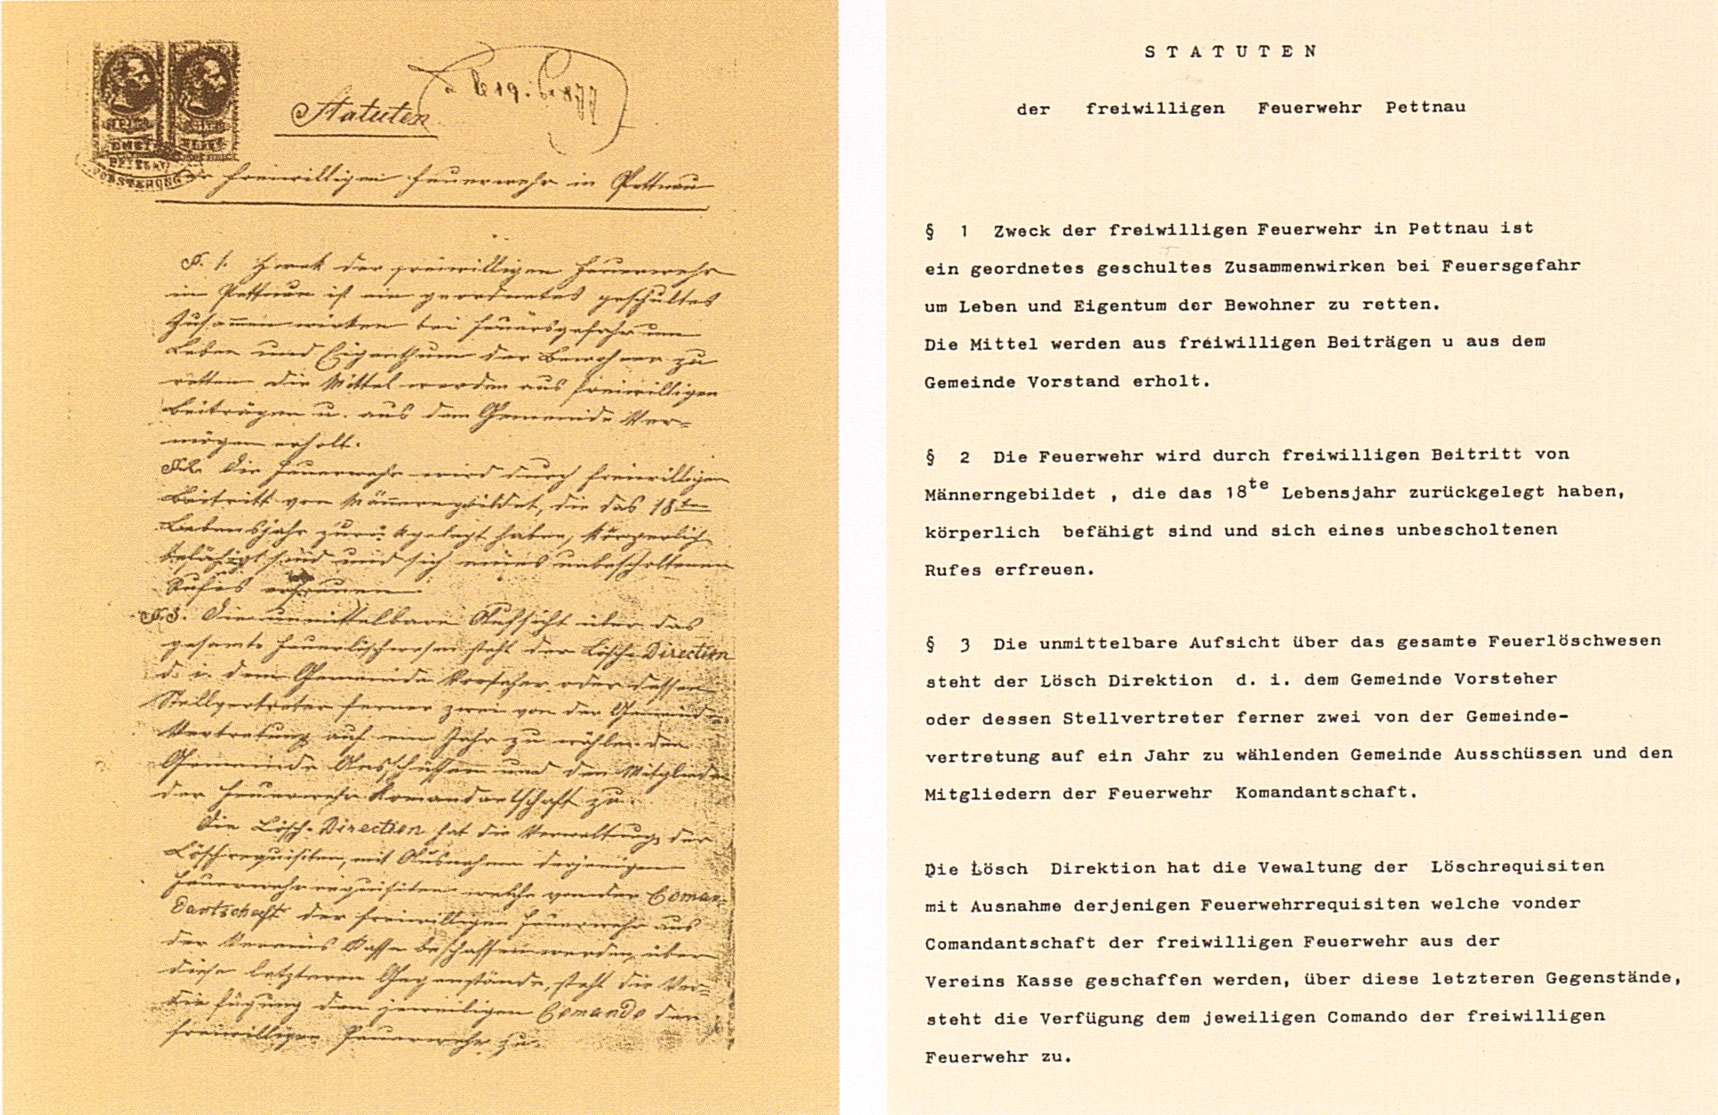 Statuten
der freiwilligen Feuerwehr in Pettnau
§. 1. Zwek der freiwilligen Feuerwehr
in Pettnau ist ein geordnetes geschultes
Zusammenwirken bei Feuersgefahr um
Leben und Eigenthum der Bewohner zu
retten Die Mittel werden aus freiwilligen
Beiträgen u. aus dem Gemeinde Ver=
mögen erholt.
§2. Die Feuerwehr wird durch freiwilligen
Beitritt von Männerngebildet, die das 18te
Lebensjahr zurükgelegt haben, körperlich
befähigt sind und sich eines unbescholtenen
Rufes erfreuen
§.3. Die unmittelbare Aufsicht über das
gesamte Feuerlöschwesen steht der Lösch-Direction
d. i. dem Gemeinde Vorsteher oder dessen
Stellvertreter ferner zwei von der Gemeinde
Vertretung auf ein Jahr zu wählenden
Gemeinde Ausschüssen und den Mitgliedern
der Feuerwehr Komandantschaft zu.
Die Lösch-Direction hat die Verwaltung der
Löschrequisiten, mit Ausnahme derjenigen
Feuerwehrrequisiten welche vonder Coman=
dantschaft der freiwilligen Feuerwehr aus
der Vereins Kasse beschaffen werden, über
diese letzteren Gegenstände, steht die Ver=
fügung dem jeweiligen Comando der
freiwilligen Feuerwehr zu.
STATUTEN
der freiwilligen Feuerwehr Pettnau
§ 1 Zweck der freiwilligen Feuerwehr in Pettnau ist
ein geordnetes geschultes Zusammenwirken bei Feuersgefahr
um Leben und Eigentum der Bewohner zu retten.
Die Mittel werden aus freiwilligen Beiträgen u aus dem
Gemeinde Vorstand erholt.
§ 2 Die Feuerwehr wird durch freiwilligen Beitritt von
Männerngebildet , die das 18te Lebensjahr zurückgelegt haben,
körperlich befähigt sind und sich eines unbescholtenen
Rufes erfreuen.
§ 3 Die unmittelbare Aufsicht über das gesamte Feuerlöschwesen
steht der Lösch Direktion d. i. dem Gemeinde Vorsteher
oder dessen Stellvertreter ferner zwei von der Gemeinde-
vertretung auf ein Jahr zu wählenden Gemeinde Ausschüssen und den
Mitgliedern der Feuerwehr Komandantschaft.
Die Lösch Direktion hat die Vewaltung der Löschrequisiten
mit Ausnahme derjenigen Feuerwehrrequisiten welche vonder
Comandantschaft der freiwilligen Feuerwehr aus der
Vereins Kasse geschaffen werden, über diese letzteren Gegenstände,
steht die Verfügung dem jeweiligen Comando der freiwilligen
Feuerwehr zu.